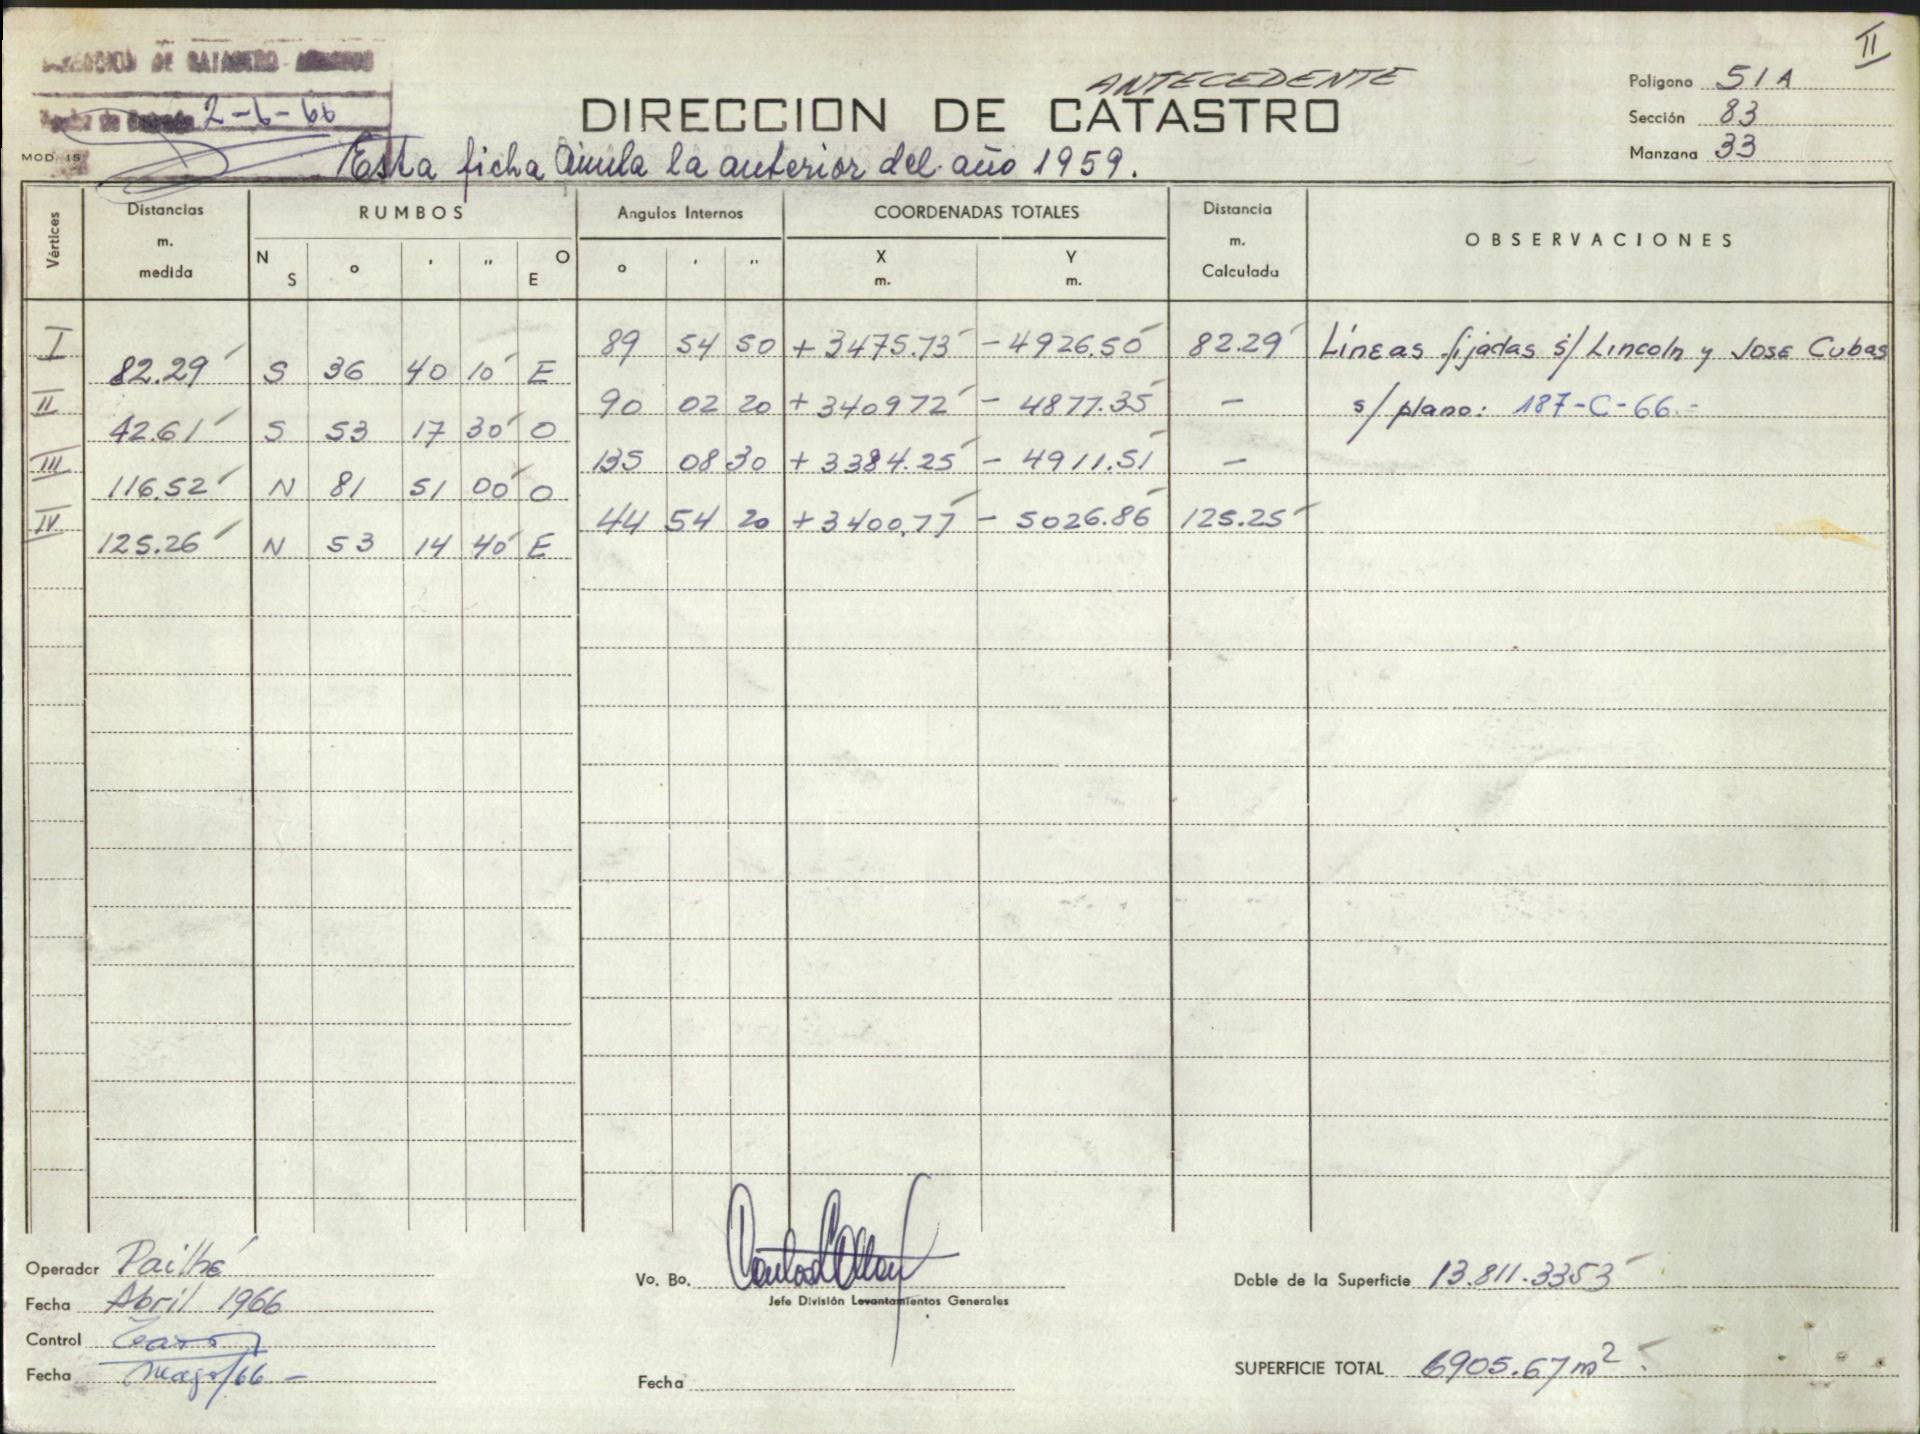 II
DIRECCION DE CATASTRO
2-6-66
ANTECEDENTE
DIRECCION DE CATASTRO
Polígono 51A
Sección 83
Manzana 33
MOD. 15
Esta ficha Anula la anterior del año 1959.
Vértices
Distancias m. medida
RUMBOS
N S ° ' " O E
Angulos Internos
° ' "
COORDENADAS TOTALES
X m. Y m.
Distancia m. Calculada
OBSERVACIONES
I 89 54 50 +3475.73 -4926.50 82.29 Líneas fijadas s/ Lincoln y Jose Cubas
82.29 S 36 40 10 E
II 90 02 20 +3409.72 - 4877.35 — s/plano: 187-C-66.-
42.61 S 53 17 30 O
III 135 08 30 +3384.25 - 4911.51 —
116.52 N 81 51 00 O
IV 44 54 20 +3400.77 - 5026.86 125.25
125.26 N 53 14 40 E
Operador Pailhé
Fecha Abril 1966
Control
Fecha mayo/66 -
Vo. Bo.
Jefe División Levantamientos Generales
Fecha
Doble de la Superficie 13.811.3353
SUPERFICIE TOTAL 6905.67 m2